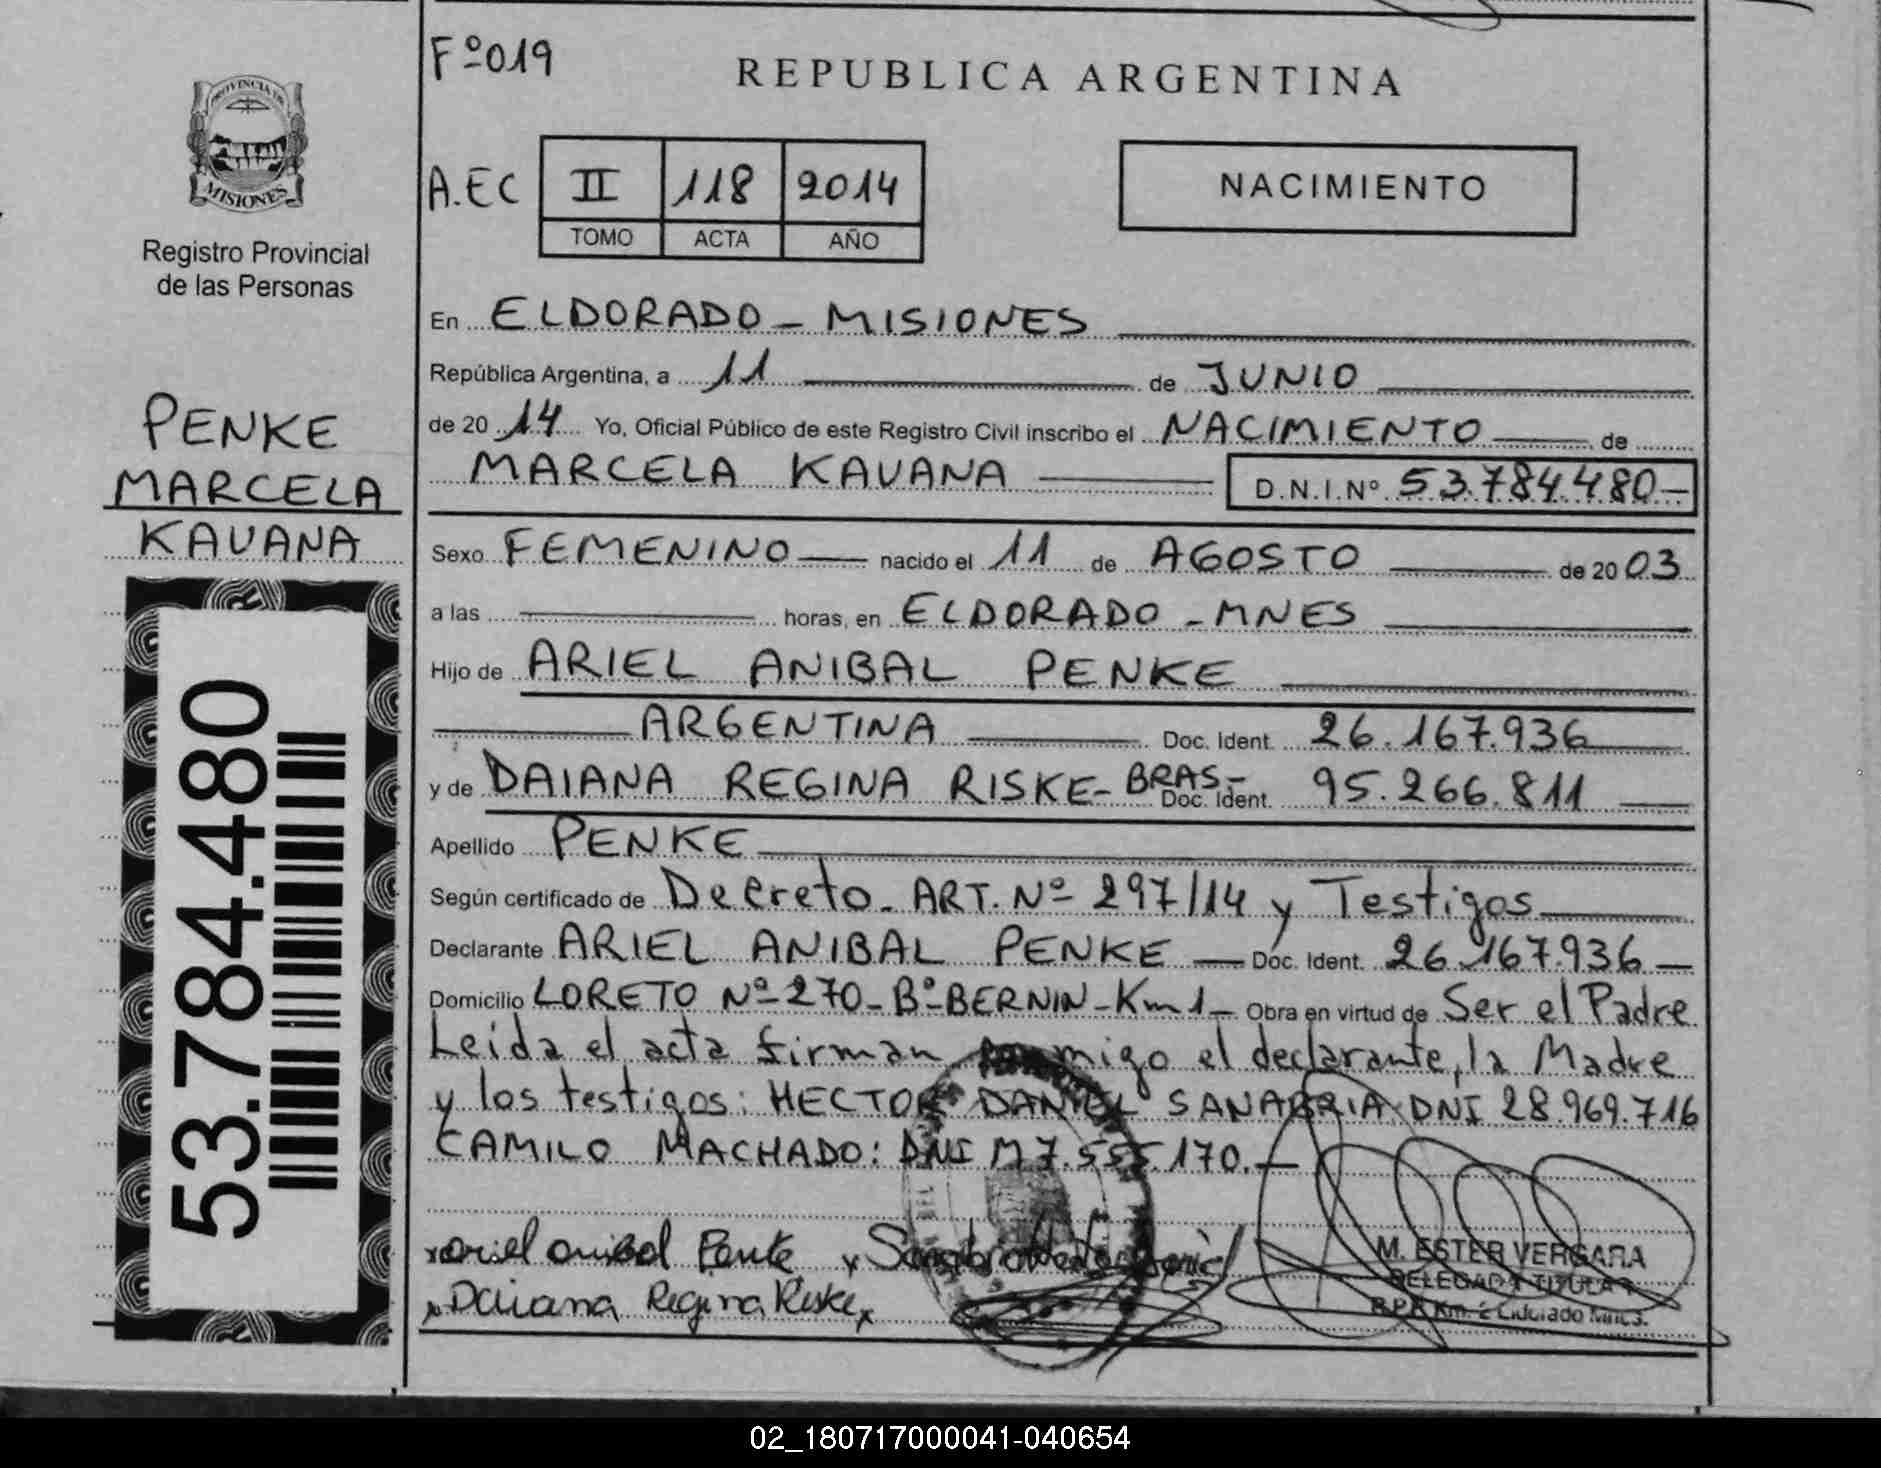 Fº 019
REPUBLICA ARGENTINA
PROVINCIA DE
MISIONES
Registro Provincial
de las Personas
A.EC II 118 2014
TOMO ACTA AÑO
NACIMIENTO
PENKE
MARCELA
KAUANA
53.784.480
En ELDORADO - MISIONES
República Argentina, a 11 de JUNIO
de 20 14 Yo, Oficial Público de este Registro Civil inscribo el NACIMIENTO de
MARCELA KAUANA D.N.I.Nº 53.784.480-
Sexo FEMENINO nacido el 11 de AGOSTO de 20 03
a las horas, en ELDORADO - MNES
Hijo de ARIEL ANIBAL PENKE
ARGENTINA Doc. Ident. 26.167.936
y de DAIANA REGINA RISKE- BRAS- Doc. Ident. 95.266.811
Apellido PENKE
Según certificado de Decreto - ART. Nº 297/14 y Testigos
Declarante ARIEL ANIBAL PENKE - Doc. Ident. 26.167.936 -
Domicilio LORETO Nº 270 - Bº BERNIN - Km 1 - Obra en virtud de Ser el Padre
Leida el acta firman conmigo el declarante, la Madre
y los testigos: HECTOR DANIEL SANABRIA DNI 28.969.716
CAMILO MACHADO: DNI M 7.555.170.-
x Ariel Anibal Penke x Sanabria
x Daiana Regina Riske x
M. ESTER VERGARA
DELEGADA TITULAR
R.P.P. Km. 2 Eldorado Mnes.
02_180717000041-040654